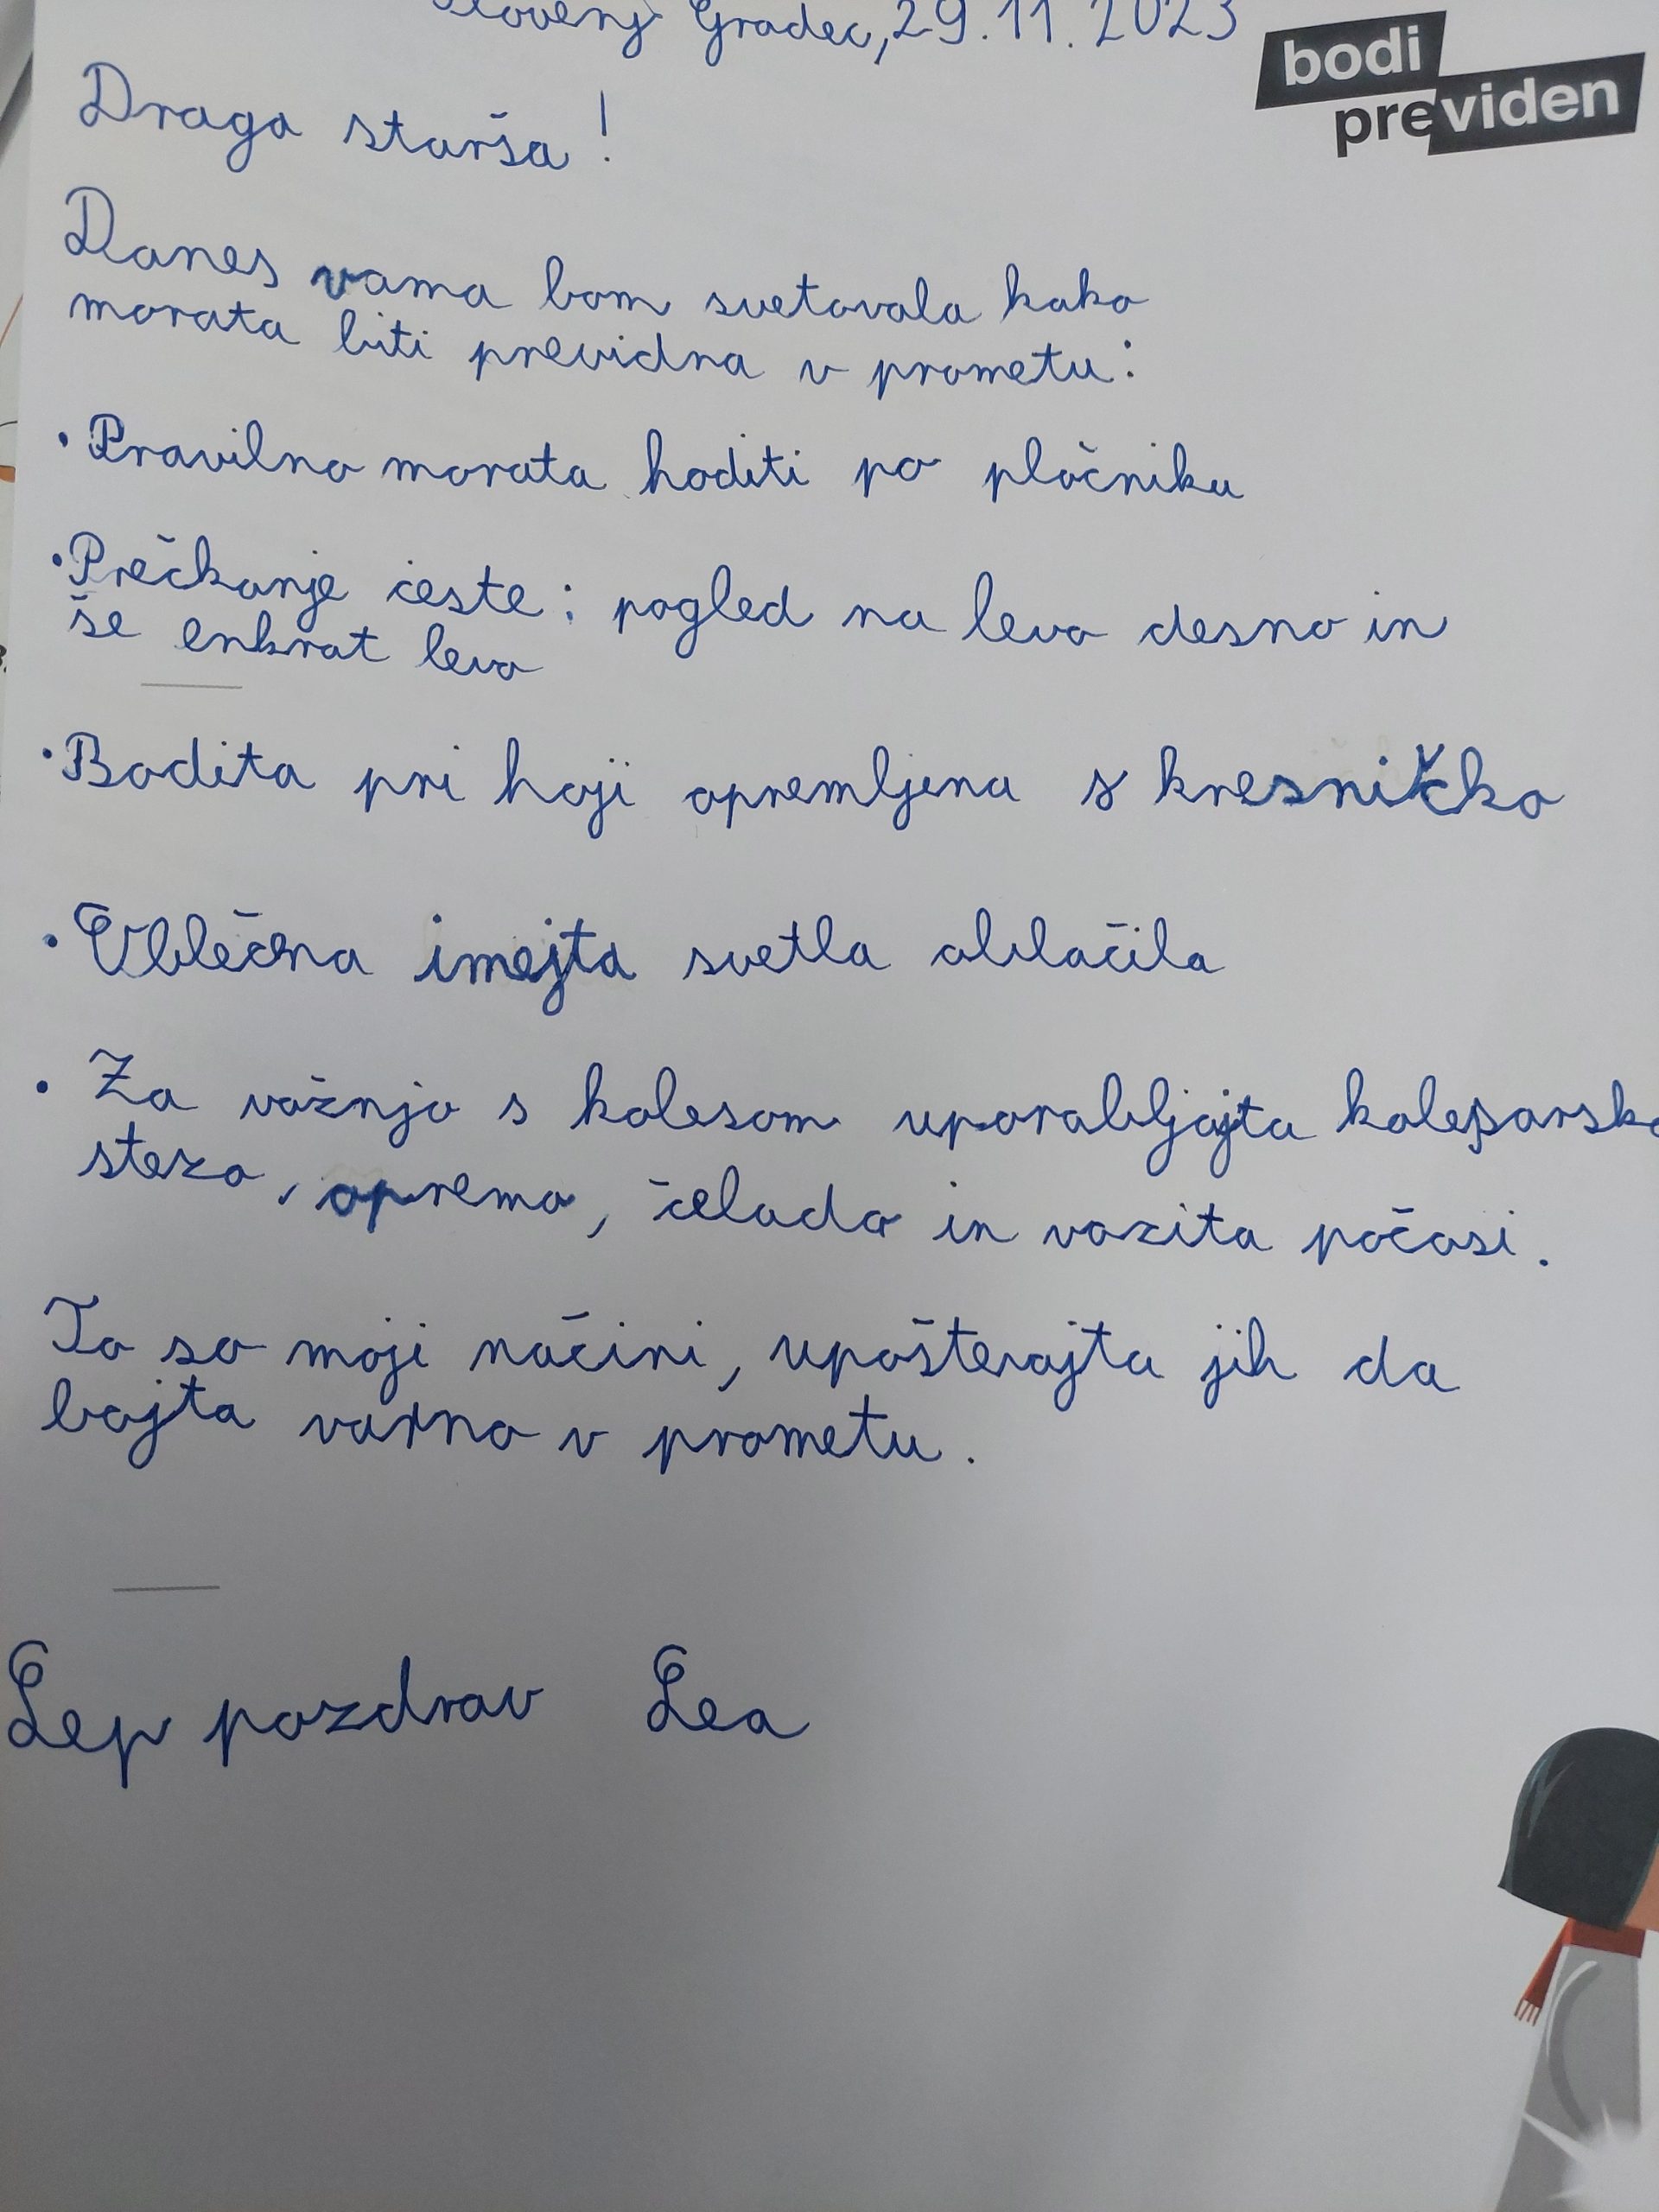 Slovenj Gradec, 29.11.2023
bodi
previden
Draga starša!
Danes vama bom svetovala kako
morata biti previdna v prometu:
• Pravilno morata hoditi po pločniku
• Prečkanje ceste: pogled na levo desno in
še enkrat levo
• Bodita pri hoji opremljena s kresničko
• Oblečena imejta svetla oblačila
• Za vožnjo s kolesom uporabljajta kolesarsko
stezo, opremo, čelado in vozita počasi.
To so moji načini, upoštevajta jih da
bojta varno v prometu.
Lep pozdrav Lea